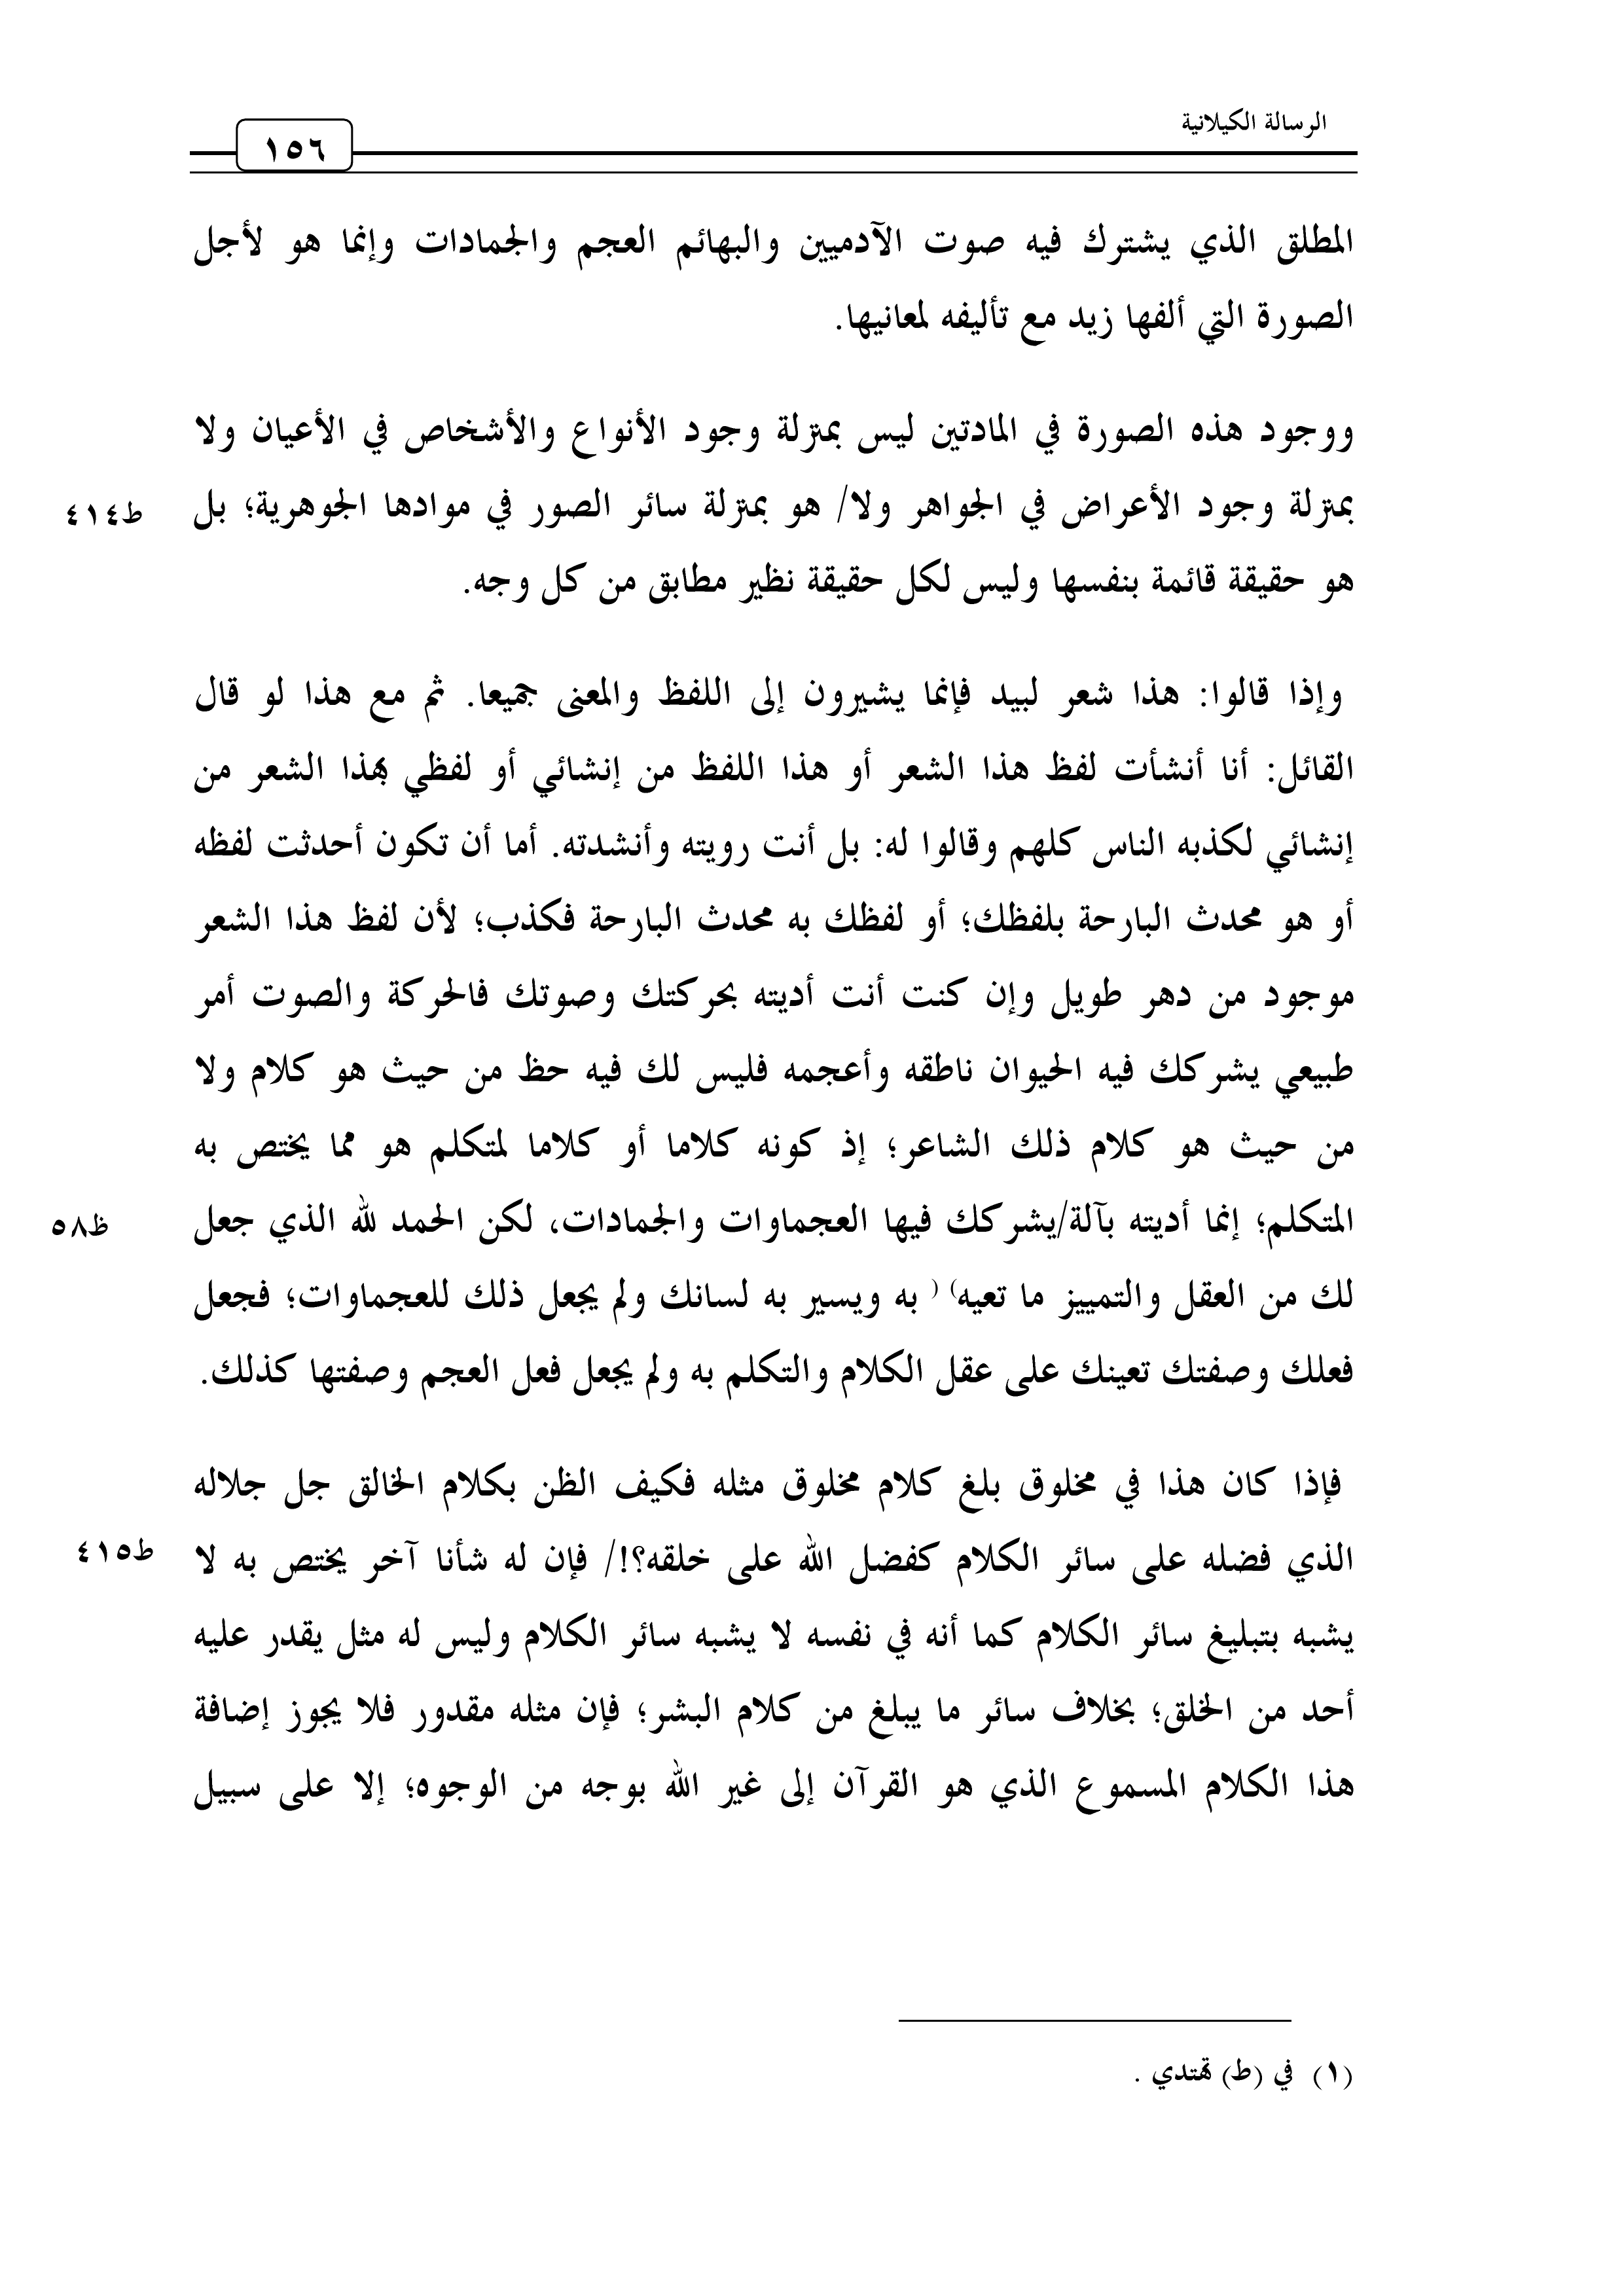 الرسالة الكيلانية
١٥٦
المطلق الذي يشترك فيه صوت الآدميين والبهائم العجم والجمادات وإنما هو لأجل
الصورة التي ألفها زيد مع تأليفه لمعانيها.
ووجود هذه الصورة في المادتين ليس بمنزلة وجود الأنواع والأشخاص في الأعيان ولا
بمنزلة وجود الأعراض في الجواهر ولا/ هو بمنزلة سائر الصور في موادها الجوهرية؛ بل
ط٤١٤
هو حقيقة قائمة بنفسها وليس لكل حقيقة نظير مطابق من كل وجه.
وإذا قالوا: هذا شعر لبيد فإنما يشيرون إلى اللفظ والمعنى جميعا. ثم مع هذا لو قال
القائل: أنا أنشأت لفظ هذا الشعر أو هذا اللفظ من إنشائي أو لفظي بهذا الشعر من
إنشائي لكذبه الناس كلهم وقالوا له: بل أنت رويته وأنشدته. أما أن تكون أحدثت لفظه
أو هو محدث البارحة بلفظك؛ أو لفظك به محدث البارحة فكذب؛ لأن لفظ هذا الشعر
موجود من دهر طويل وإن كنت أنت أديته بحركتك وصوتك فالحركة والصوت أمر
طبيعي يشركك فيه الحيوان ناطقه وأعجمه فليس لك فيه حظ من حيث هو كلام ولا
من حيث هو كلام ذلك الشاعر؛ إذ كونه كلاما أو كلاما لمتكلم هو مما يختص به
المتكلم؛ إنما أديته بآلة/يشركك فيها العجماوات والجمادات، لكن الحمد لله الذي جعل
ظ٥٨
لك من العقل والتمييز ما تعيه) ( به ويسير به لسانك ولم يجعل ذلك للعجماوات؛ فجعل
فعلك وصفتك تعينك على عقل الكلام والتكلم به ولم يجعل فعل العجم وصفتها كذلك.
فإذا كان هذا في مخلوق بلغ كلام مخلوق مثله فكيف الظن بكلام الخالق جل جلاله
الذي فضله على سائر الكلام كفضل الله على خلقه؟!/ فإن له شأنا آخر يختص به لا
ط٤١٥
يشبه بتبليغ سائر الكلام كما أنه في نفسه لا يشبه سائر الكلام وليس له مثل يقدر عليه
أحد من الخلق؛ بخلاف سائر ما يبلغ من كلام البشر؛ فإن مثله مقدور فلا يجوز إضافة
هذا الكلام المسموع الذي هو القرآن إلى غير الله بوجه من الوجوه؛ إلا على سبيل
(١) في (ط) تهتدي .